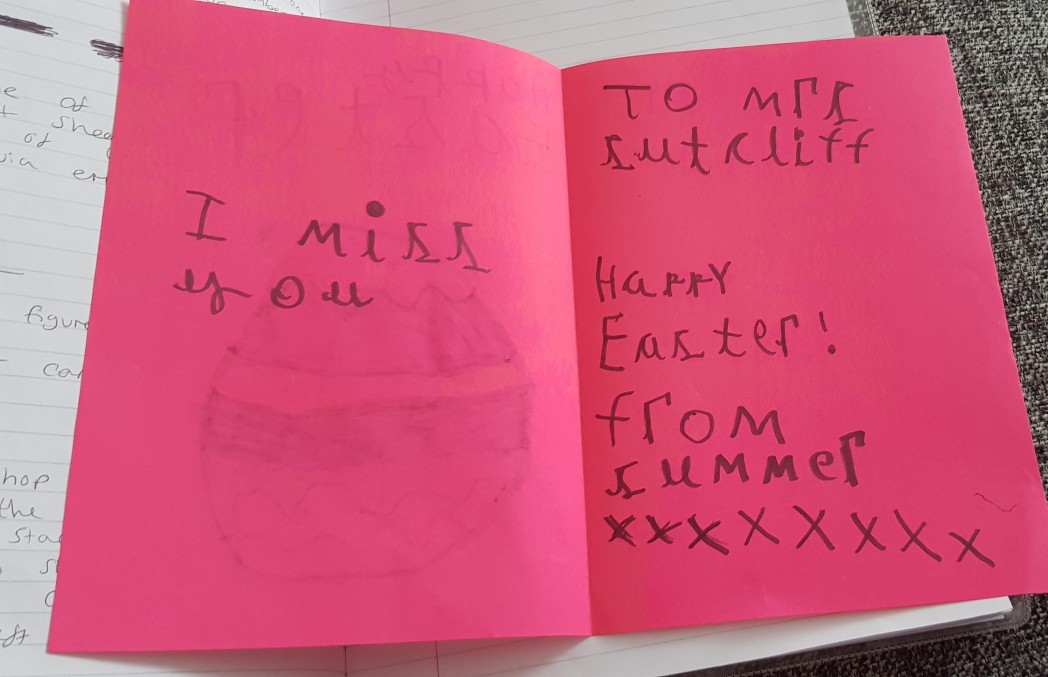 e of
shee
of
via
figure
hop
the
sta
I miss
you
To Mrs
sutcliff
Happy
Easter!
from
summer
xxxxxxxx